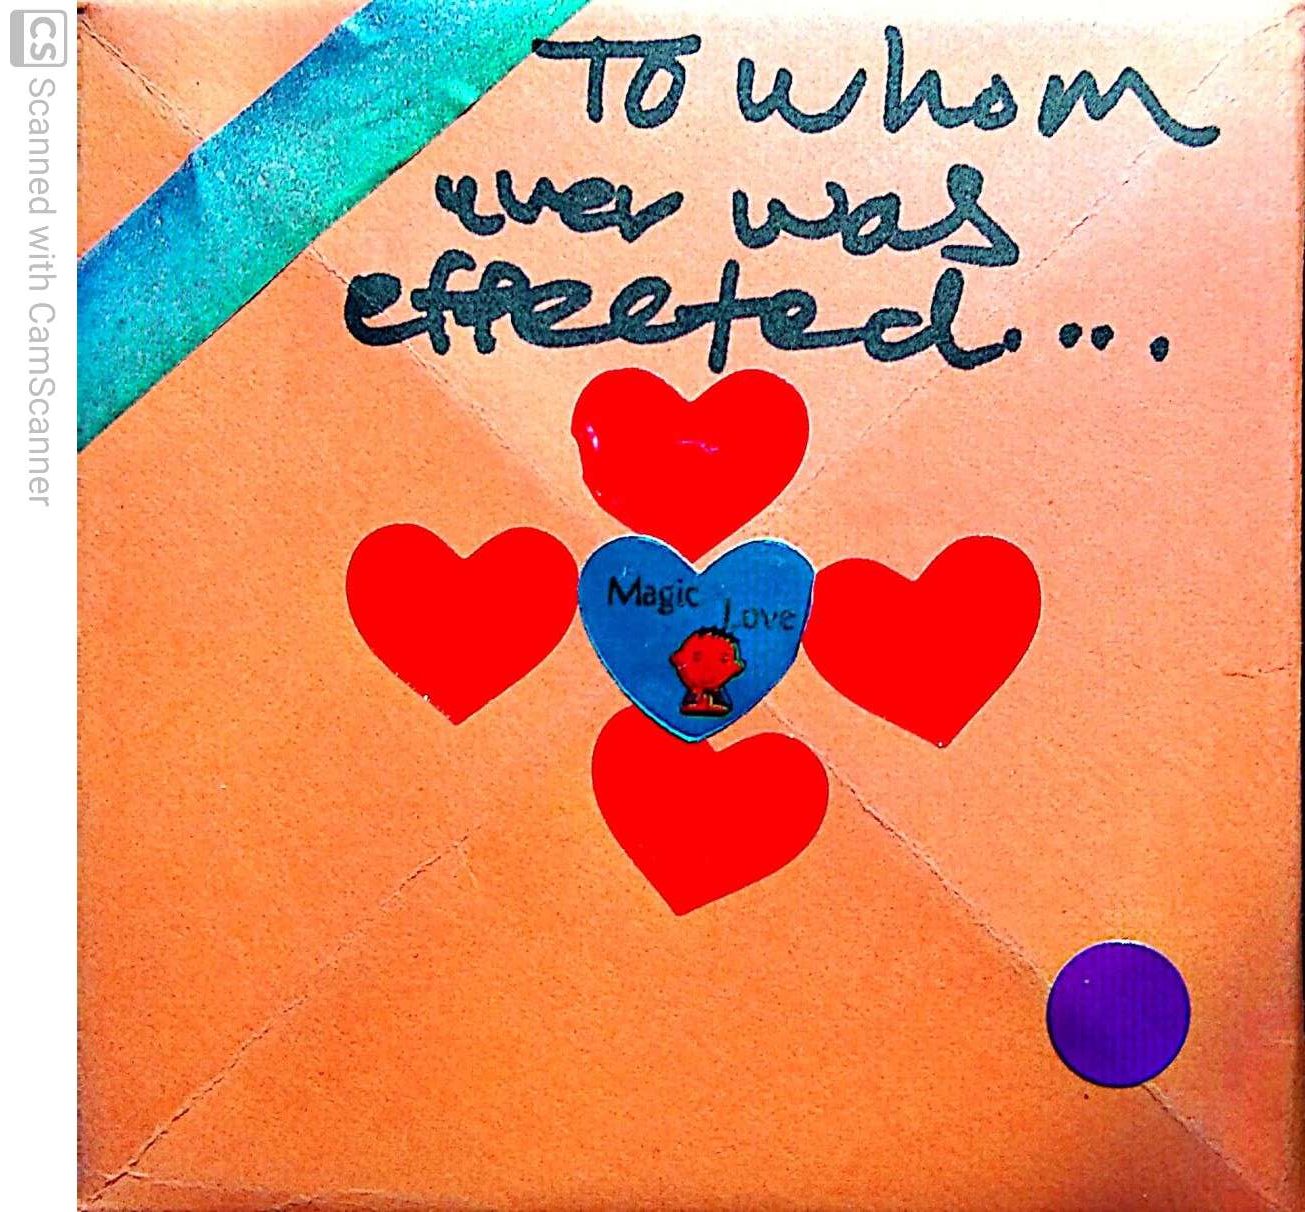 To whom
ever was
effeeted....
Magic
Love
CS Scanned with CamScanner